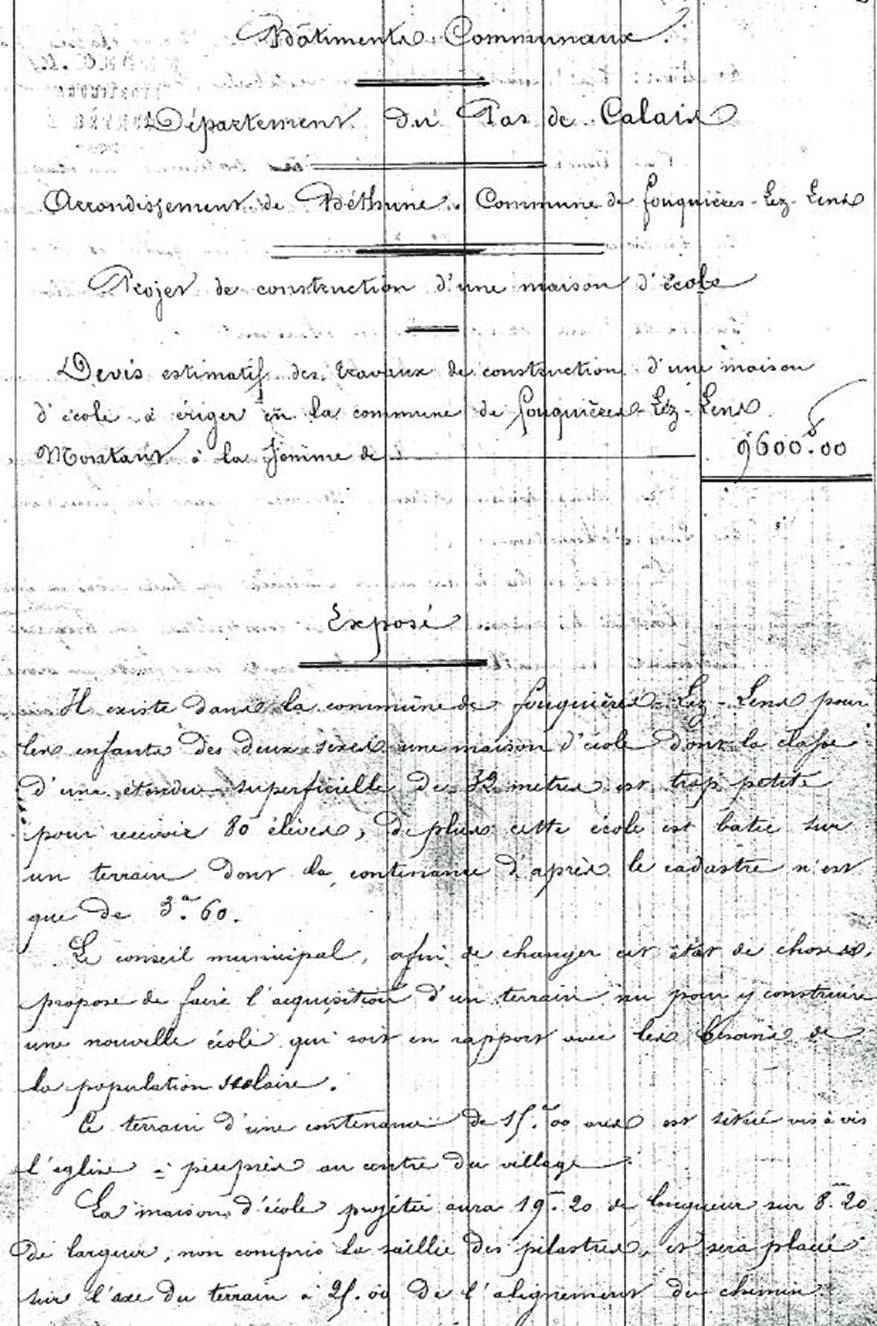 Bâtiments Communaux.
Département du Pas de Calais
Arrondissement de Béthune. Commune de fouquières-Lez-Lens
Projet de construction d'une maison d'école
Devis estimatif des travaux de construction d'une maison
d'école à ériger en la commune de fouquières-Lez-Lens
Montant à la somme de 9600.00
Exposé
Il existe dans la commune de fouquières-Lez-Lens pour
les enfants des deux sexes une maison d'école dont la classe
d'une étendue superficielle de 32 metres est trop petite
pour recevoir 80 élèves, de plus cette école est batie sur
un terrain dont la contenance d'après le cadastre n'est
que de 3a.60.
Le conseil municipal, afin de changer cet état de choses,
propose de faire l'acquisition d'un terrain nu pour y construire
une nouvelle école qui soit en rapport avec les besoins de
la population scolaire.
Ce terrain d'une contenance de 15.00 ares est situé vis à vis
l'eglise à peuprès au centre du village.
La maison d'école projetée aura 19m.20 de longueur sur 8m.20
de largeur, non compris la saillie des pilastres, et sera placée
sur l'axe du terrain à 25.00 de l'alignement du chemin